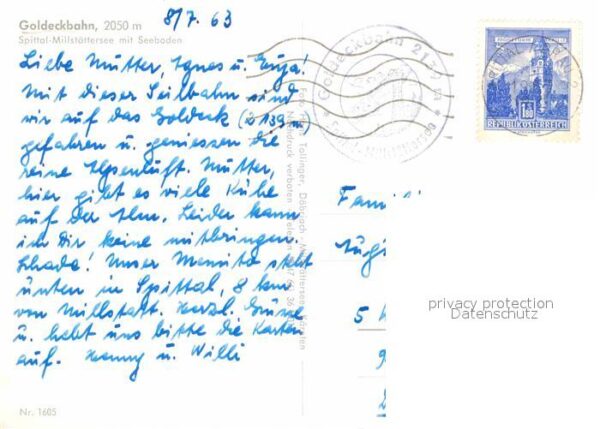 Goldeckbahn, 2050 m
Spittal-Millstättersee mit Seeboden
8/7. 63
Liebe Mutter, Agnes u.
Mit dieser Seilbahn sind
wir auf das Goldeck (2139 m)
gefahren u. geniessen die
reine Alpenluft. Mutter,
hier gibt es viele Kühe
auf der Alm. Leider kann
ich Dir keine mitbringen.
Schade! Unser Manita steht
unten in Spittal, 8 km
von Millstatt. Herzl. Grüsse
u. hebt uns bitte die Karten
auf. Hanny u. Willi
Nr. 1605
Tollinger, Döbriach - Millstättersee, Kärnten
Nachdruck verboten
Goldeckbahn 2139 m
REPUBLIK ÖSTERREICH
Fami
5
privacy protection
Datenschutz